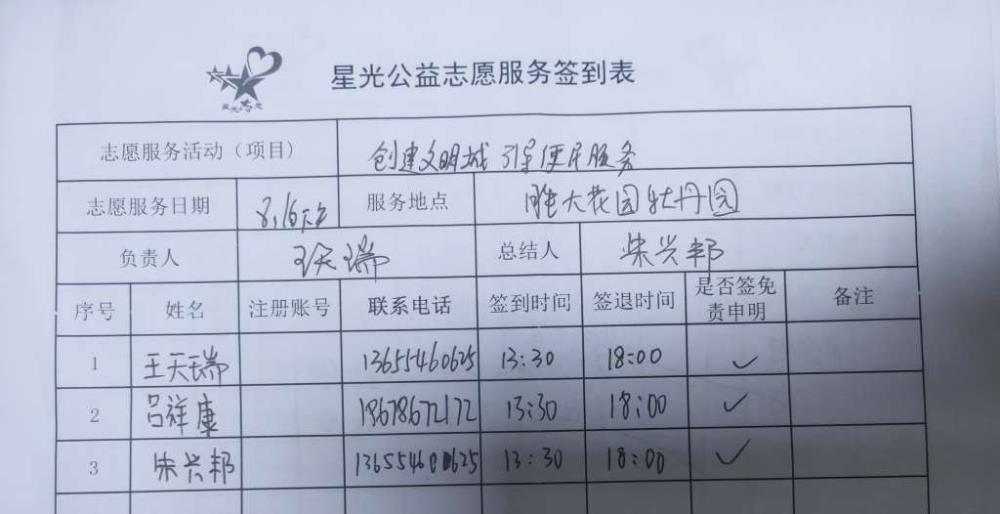 星光公益志愿服务签到表
志愿服务活动（项目） 创建文明城 引导便民服务
志愿服务日期 8,16下午 服务地点 胜大花园牡丹园
负责人 王天瑞 总结人 宋兴邦
序号 姓名 注册账号 联系电话 签到时间 签退时间 是否签免责申明 备注
1 王天瑞 13655460625 13:30 18:00 ✓
2 吕祥康 18678672172 13:30 18:00 ✓
3 宋兴邦 13655460625 13:30 18:00 ✓